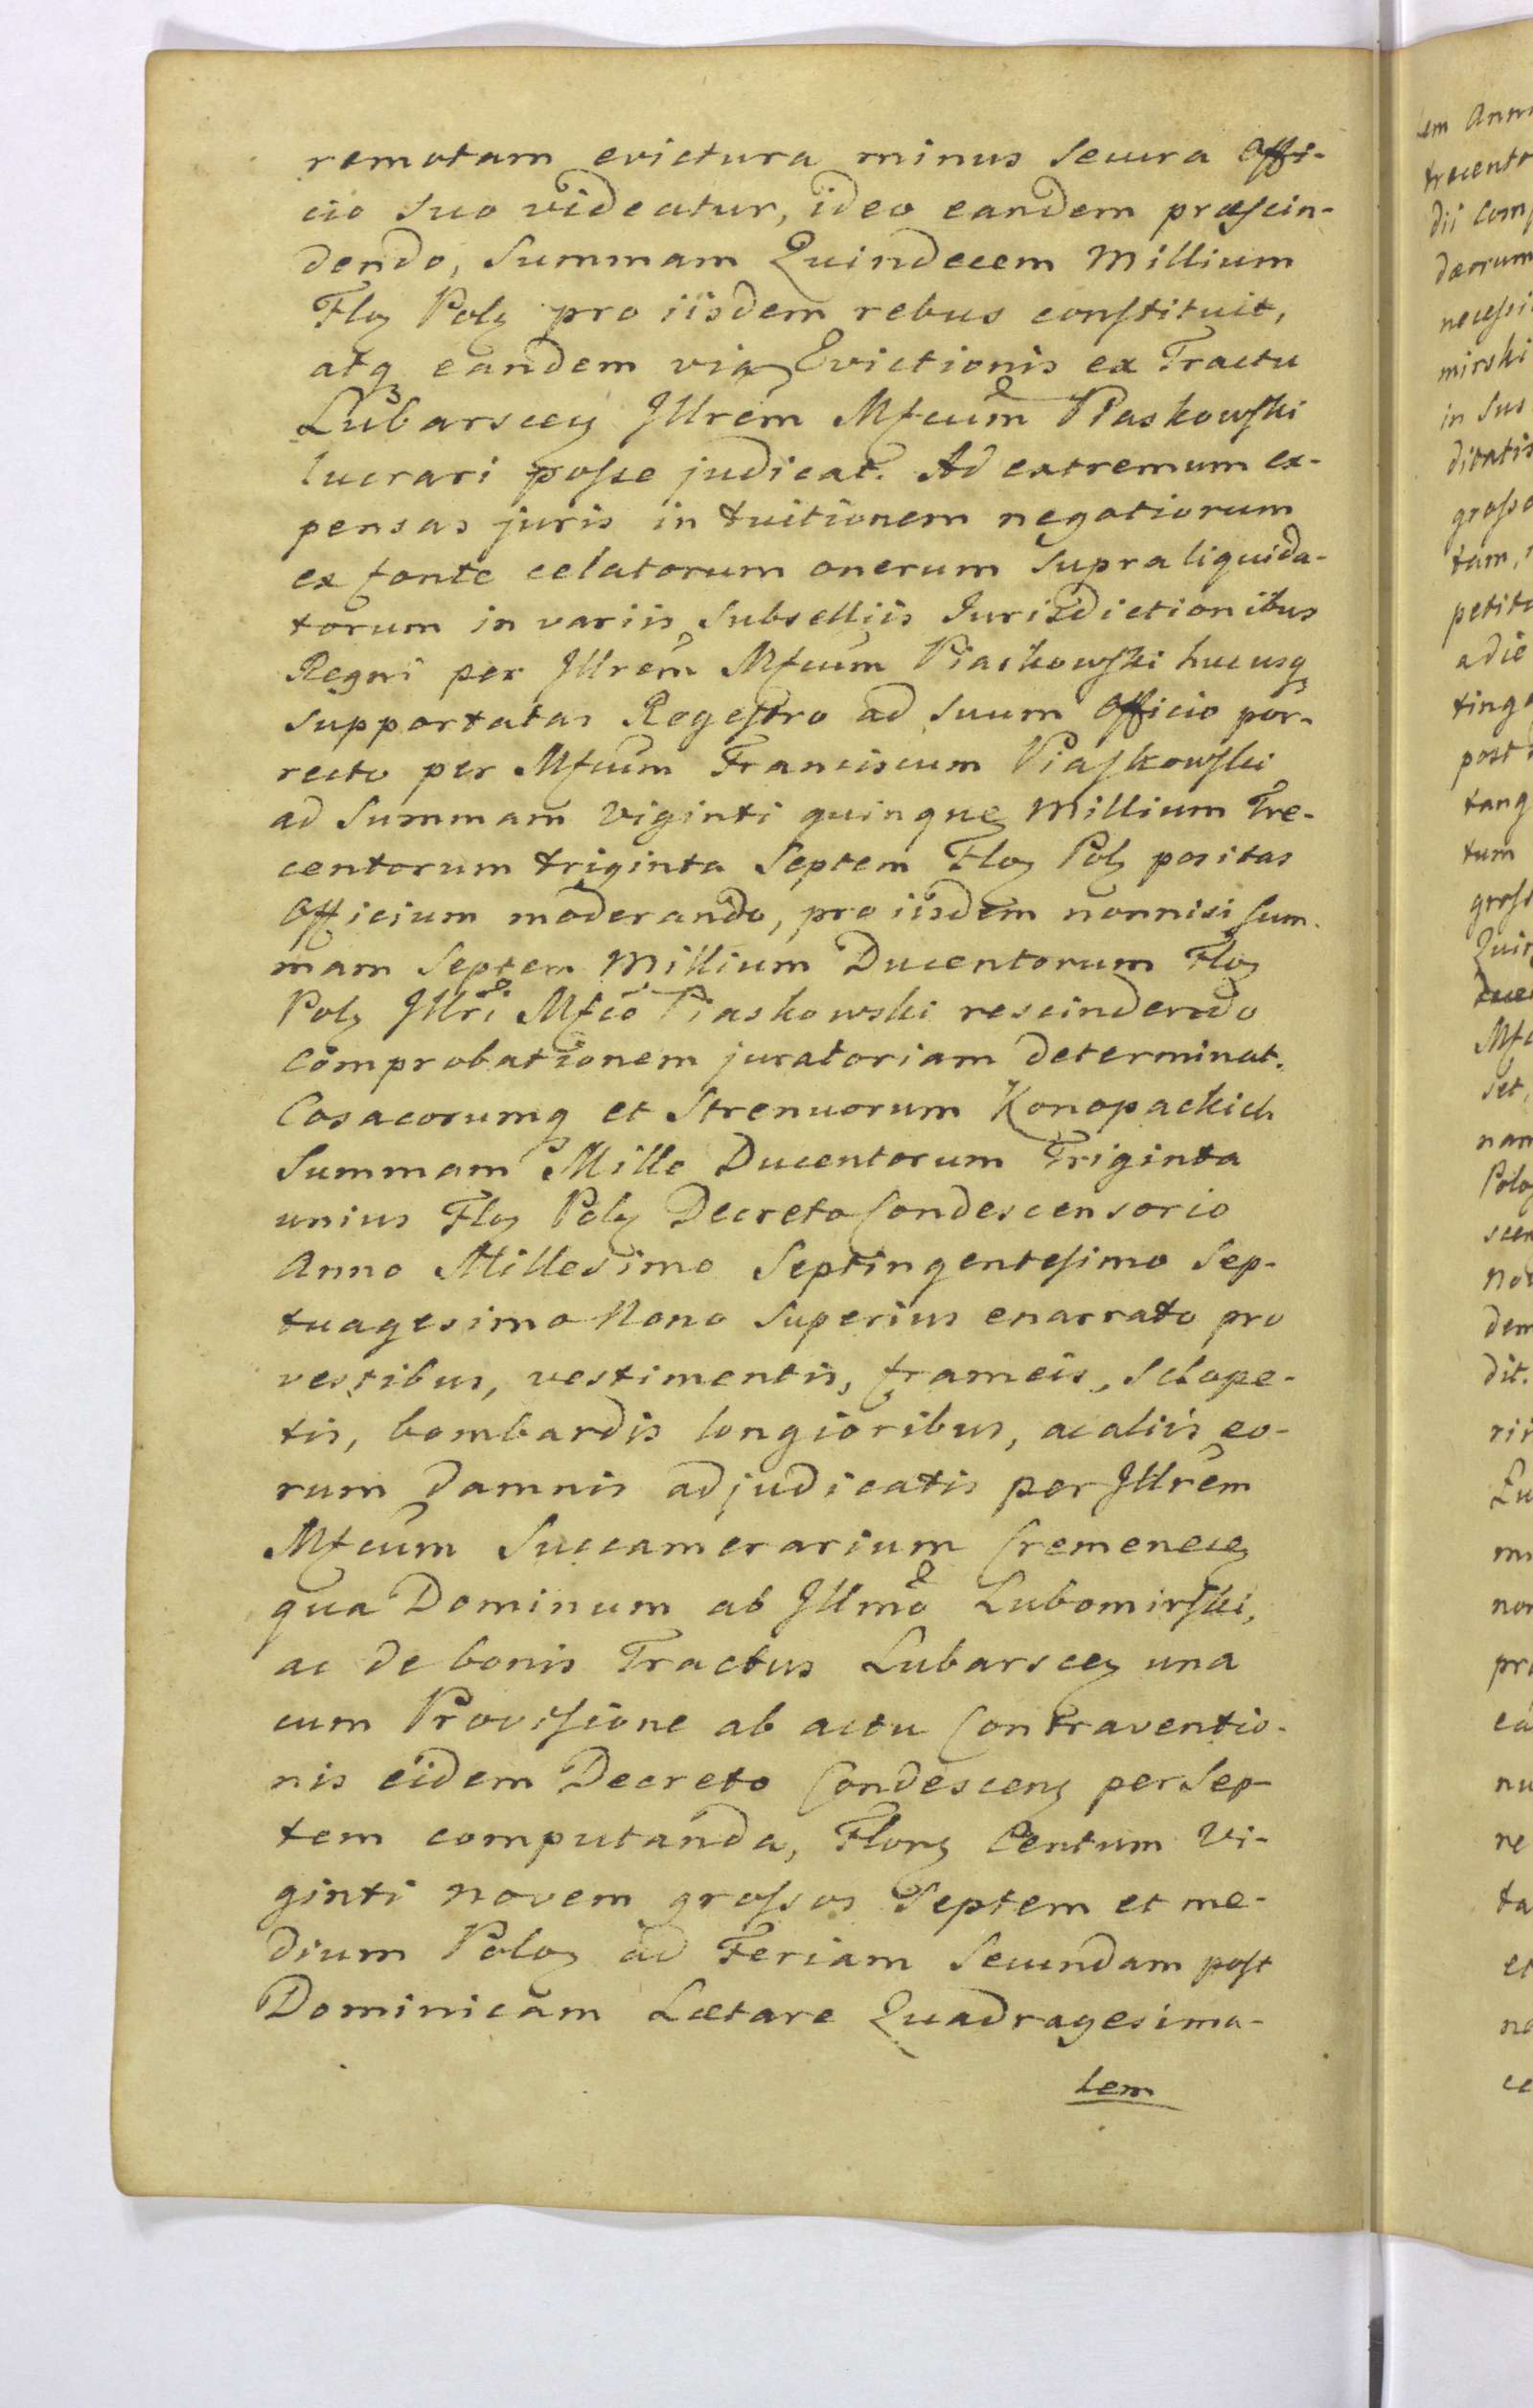 remotam evictura minus secura Offi-
cio suo videatur, ideo eandem præscin-
dendo, Summam Quindecem Millium
Floꝫ Polꝫ pro iisdem rebus constituit,
atqꝫ eandem via Evictionis ex Tractu
Lubarsceꝫ Jllrem Mfcum Piaskowski
lucrari posse judicat. Ad extremum ex-
pensas juris in tuitionem negotiorum
ex fonte celatorum onerum supra liquida-
torum in variis Subselliis Jurisdictionibus
Regni per Jllrem Mfcum Piaskowski hucusqꝫ
supportatas Regestro ad suum Officio por-
recto per Mfcum Franciscum Piaskowski
ad Summam Viginti quinque Millium Tre-
centorum triginta Septem Floꝫ Polꝫ positas
Officium moderando, pro iisdem nonnisi Sum-
mam Septem Millium Ducentorum Floꝫ
Polꝫ Jllri Mfco Piaskowski rescindendo
comprobationem juratoriam determinat.
Cosacorumqꝫ et Strenuorum Konopackich
Summam Mille Ducentorum Triginta
unius Floꝫ Polꝫ Decreto Condescensorio
Anno Millesimo Septingentesimo Sep-
tuagesimo Nono Superius enarrato pro
vestibus, vestimentis, frameis, Sclope-
tis, bombardis longioribus, ac aliis eo-
rum damnis adjudicatis per Jllrem
Mfcum Succamerarium Cremeneceꝫ
qua Dominum ab Jllmo Lubomirski,
ac de bonis Tractus Lubarsceꝫ una
cum Provisione ab actu Contraventio-
nis eidem Decreto Condescenꝫ per Sep-
tem computanda, Florꝫ Centum Vi-
ginti novem grossos Septem et me-
dium Poloꝫ ad Feriam Secundam post
Dominicam Lætare Quadragesima-
lem
lem Ann
trecento
dii Com
dærum
necessi
mirski
in Sus
ditatis
grosso
tam,
petita
adie
post
tang
tum
Mfc
set,
nam
Polo
scen
dem
dit.
non
pro
nu
re
ta
et